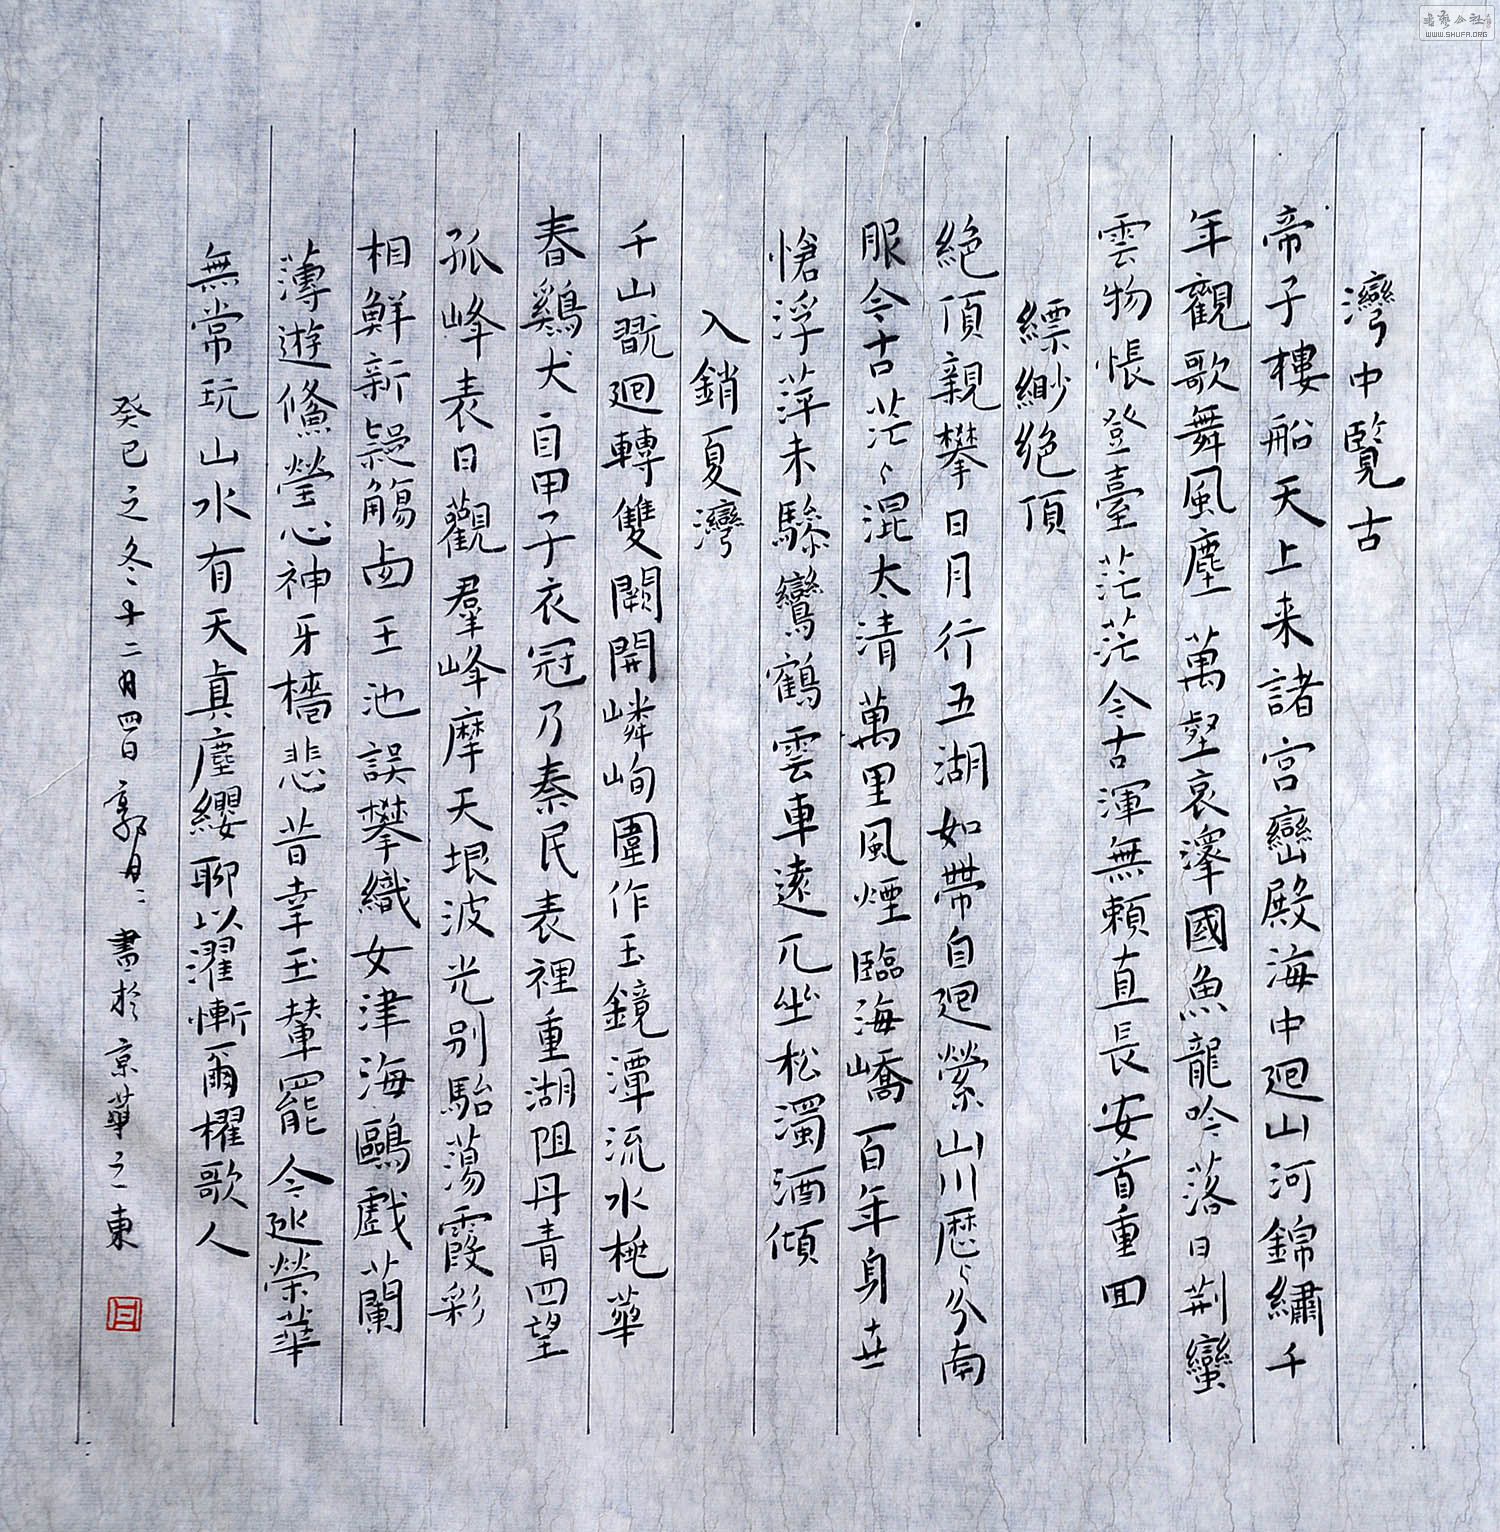 灣中覽古
帝子樓船天上来諸宮巒殿海中廻山河錦繡千
年觀歌舞風塵萬壑哀澤國魚龍吟落日荆蠻
雲物悵登臺茫茫今古渾無賴直長安首重回
縹緲絶頂
絶頂親攀日月行五湖如帶自廻縈山川歷〻分南
服今古茫〻混太清萬里風煙臨海嶠百年身世
愴浮萍未驂鸞鶴雲車遠兀坐松濁酒傾
入銷夏灣
千山翫廻轉雙闕開嶙峋圍作玉鏡潭流水桃華
春鷄犬自甲子衣冠乃秦民表裡重湖阻丹青四望
孤峰表日觀羣峰摩天垠波光别駘蕩霞彩
相鮮新觴王池誤攀織女津海鷗戲蘭
薄遊鯈瑩心神牙檣悲昔幸玉輦罷今巡榮華
無常玩山水有天真塵纓聊以濯慚爾櫂歌人
癸巳之冬十二月四日郭月書於京華之東
書藝公社
WWW.SHUFA.ORG